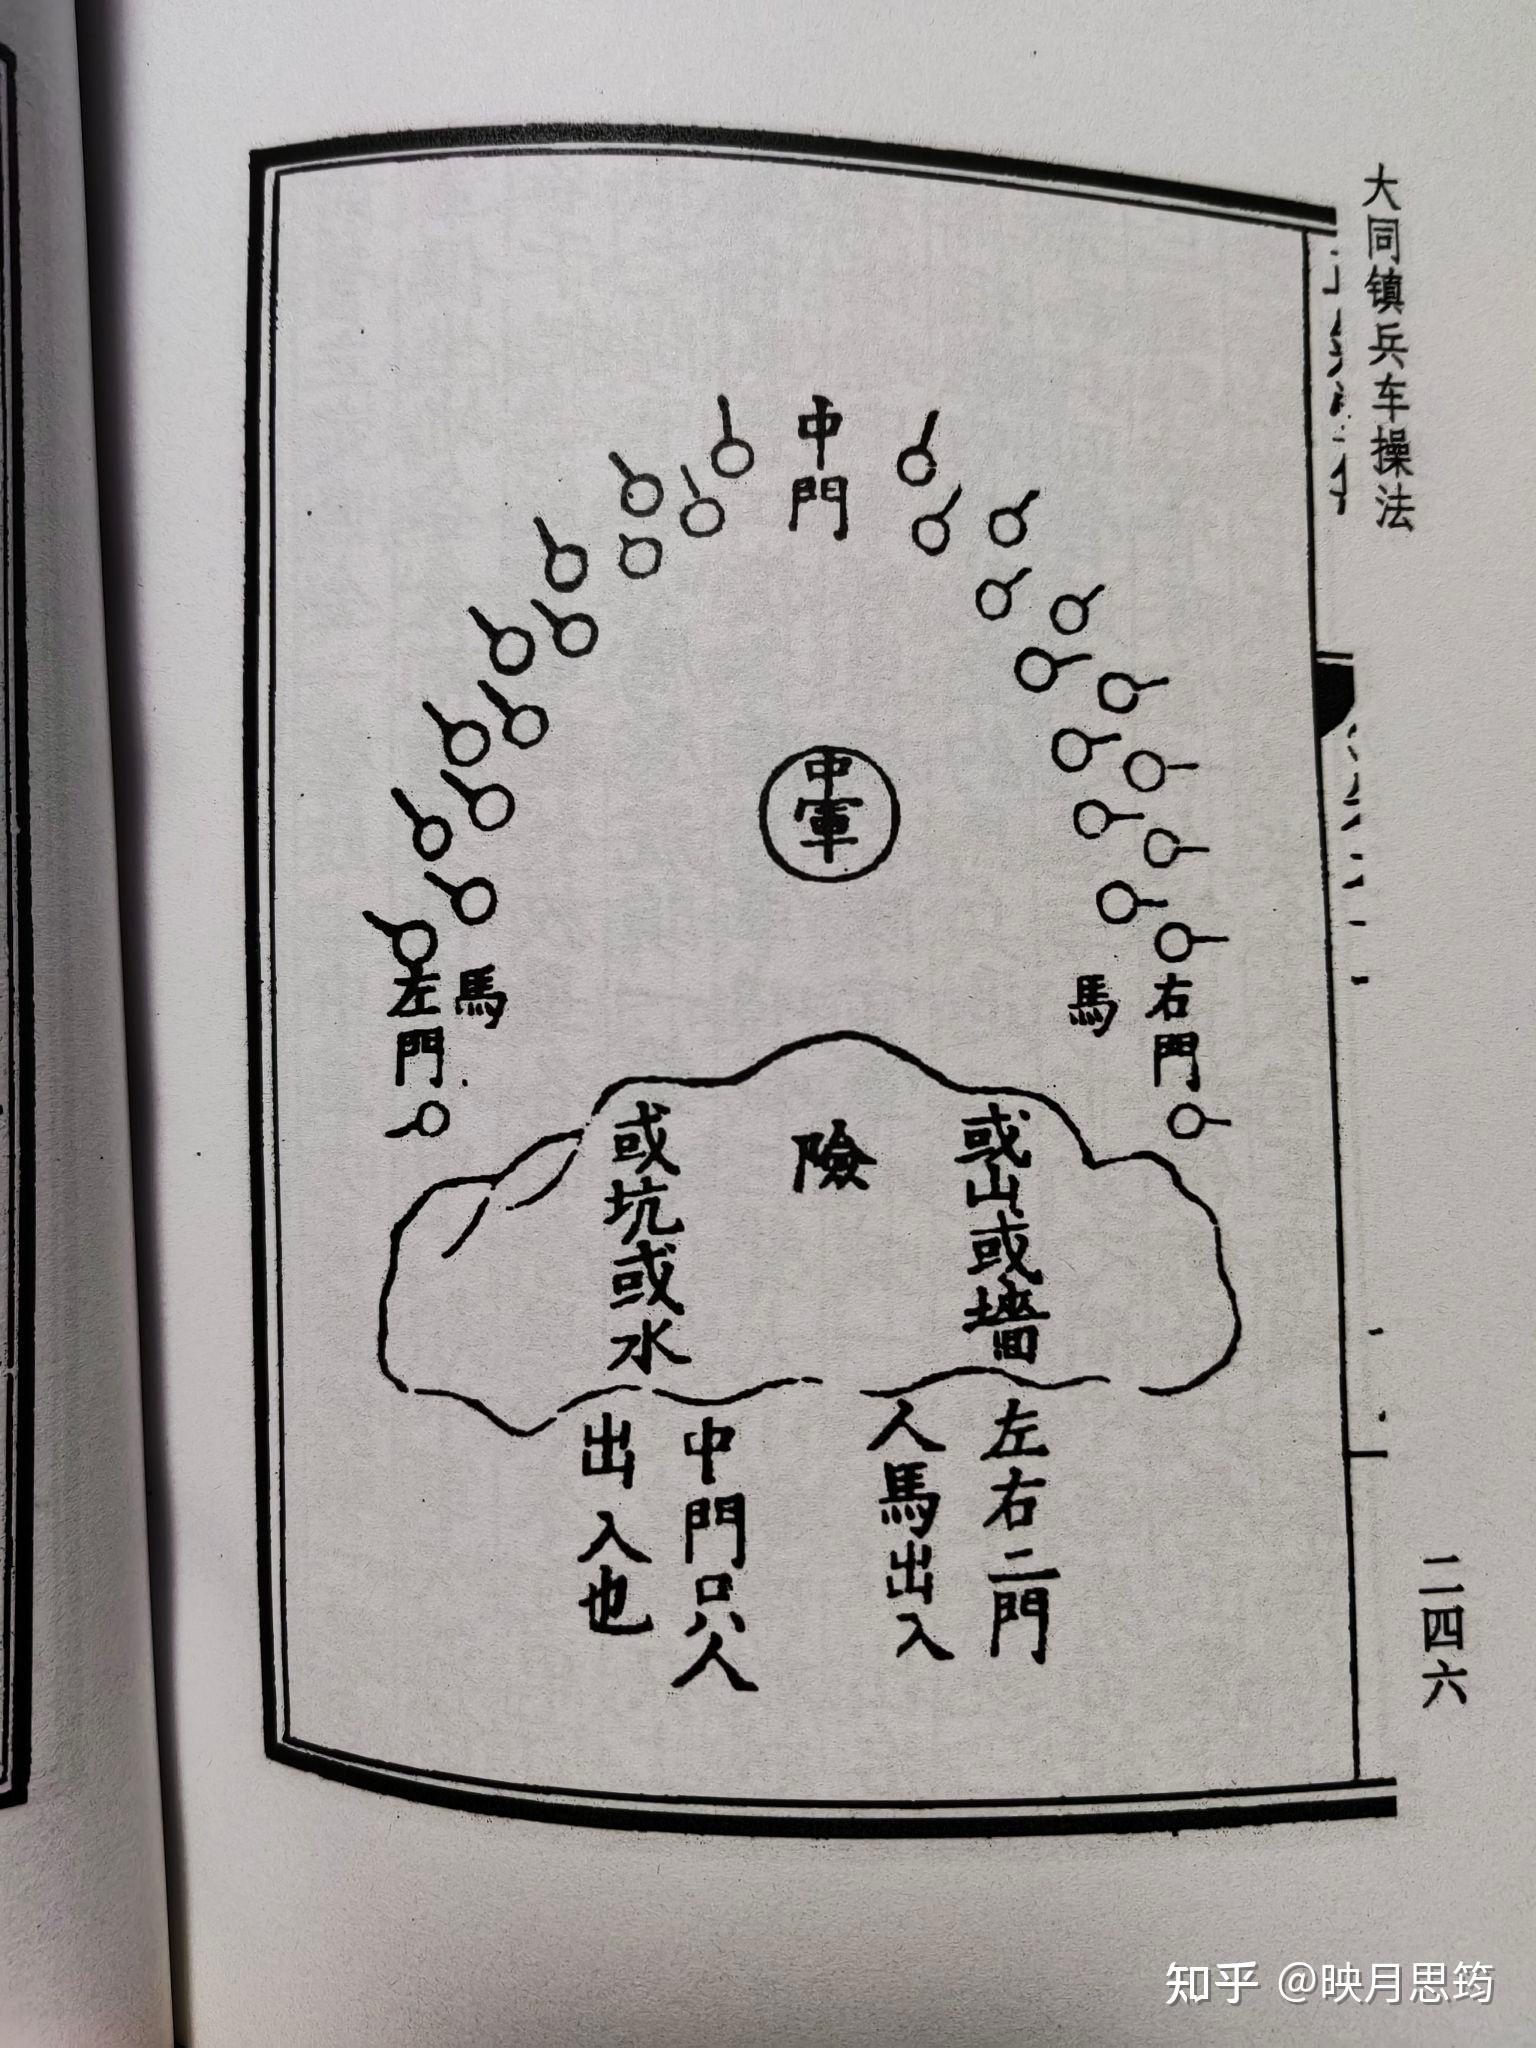 大同镇兵车操法
二四六
中門
中軍
右門
馬
馬
左門
或山或墻
險
或坑或水
左右二門
人馬出入
中門只人
出入也
知乎 @映月思筠